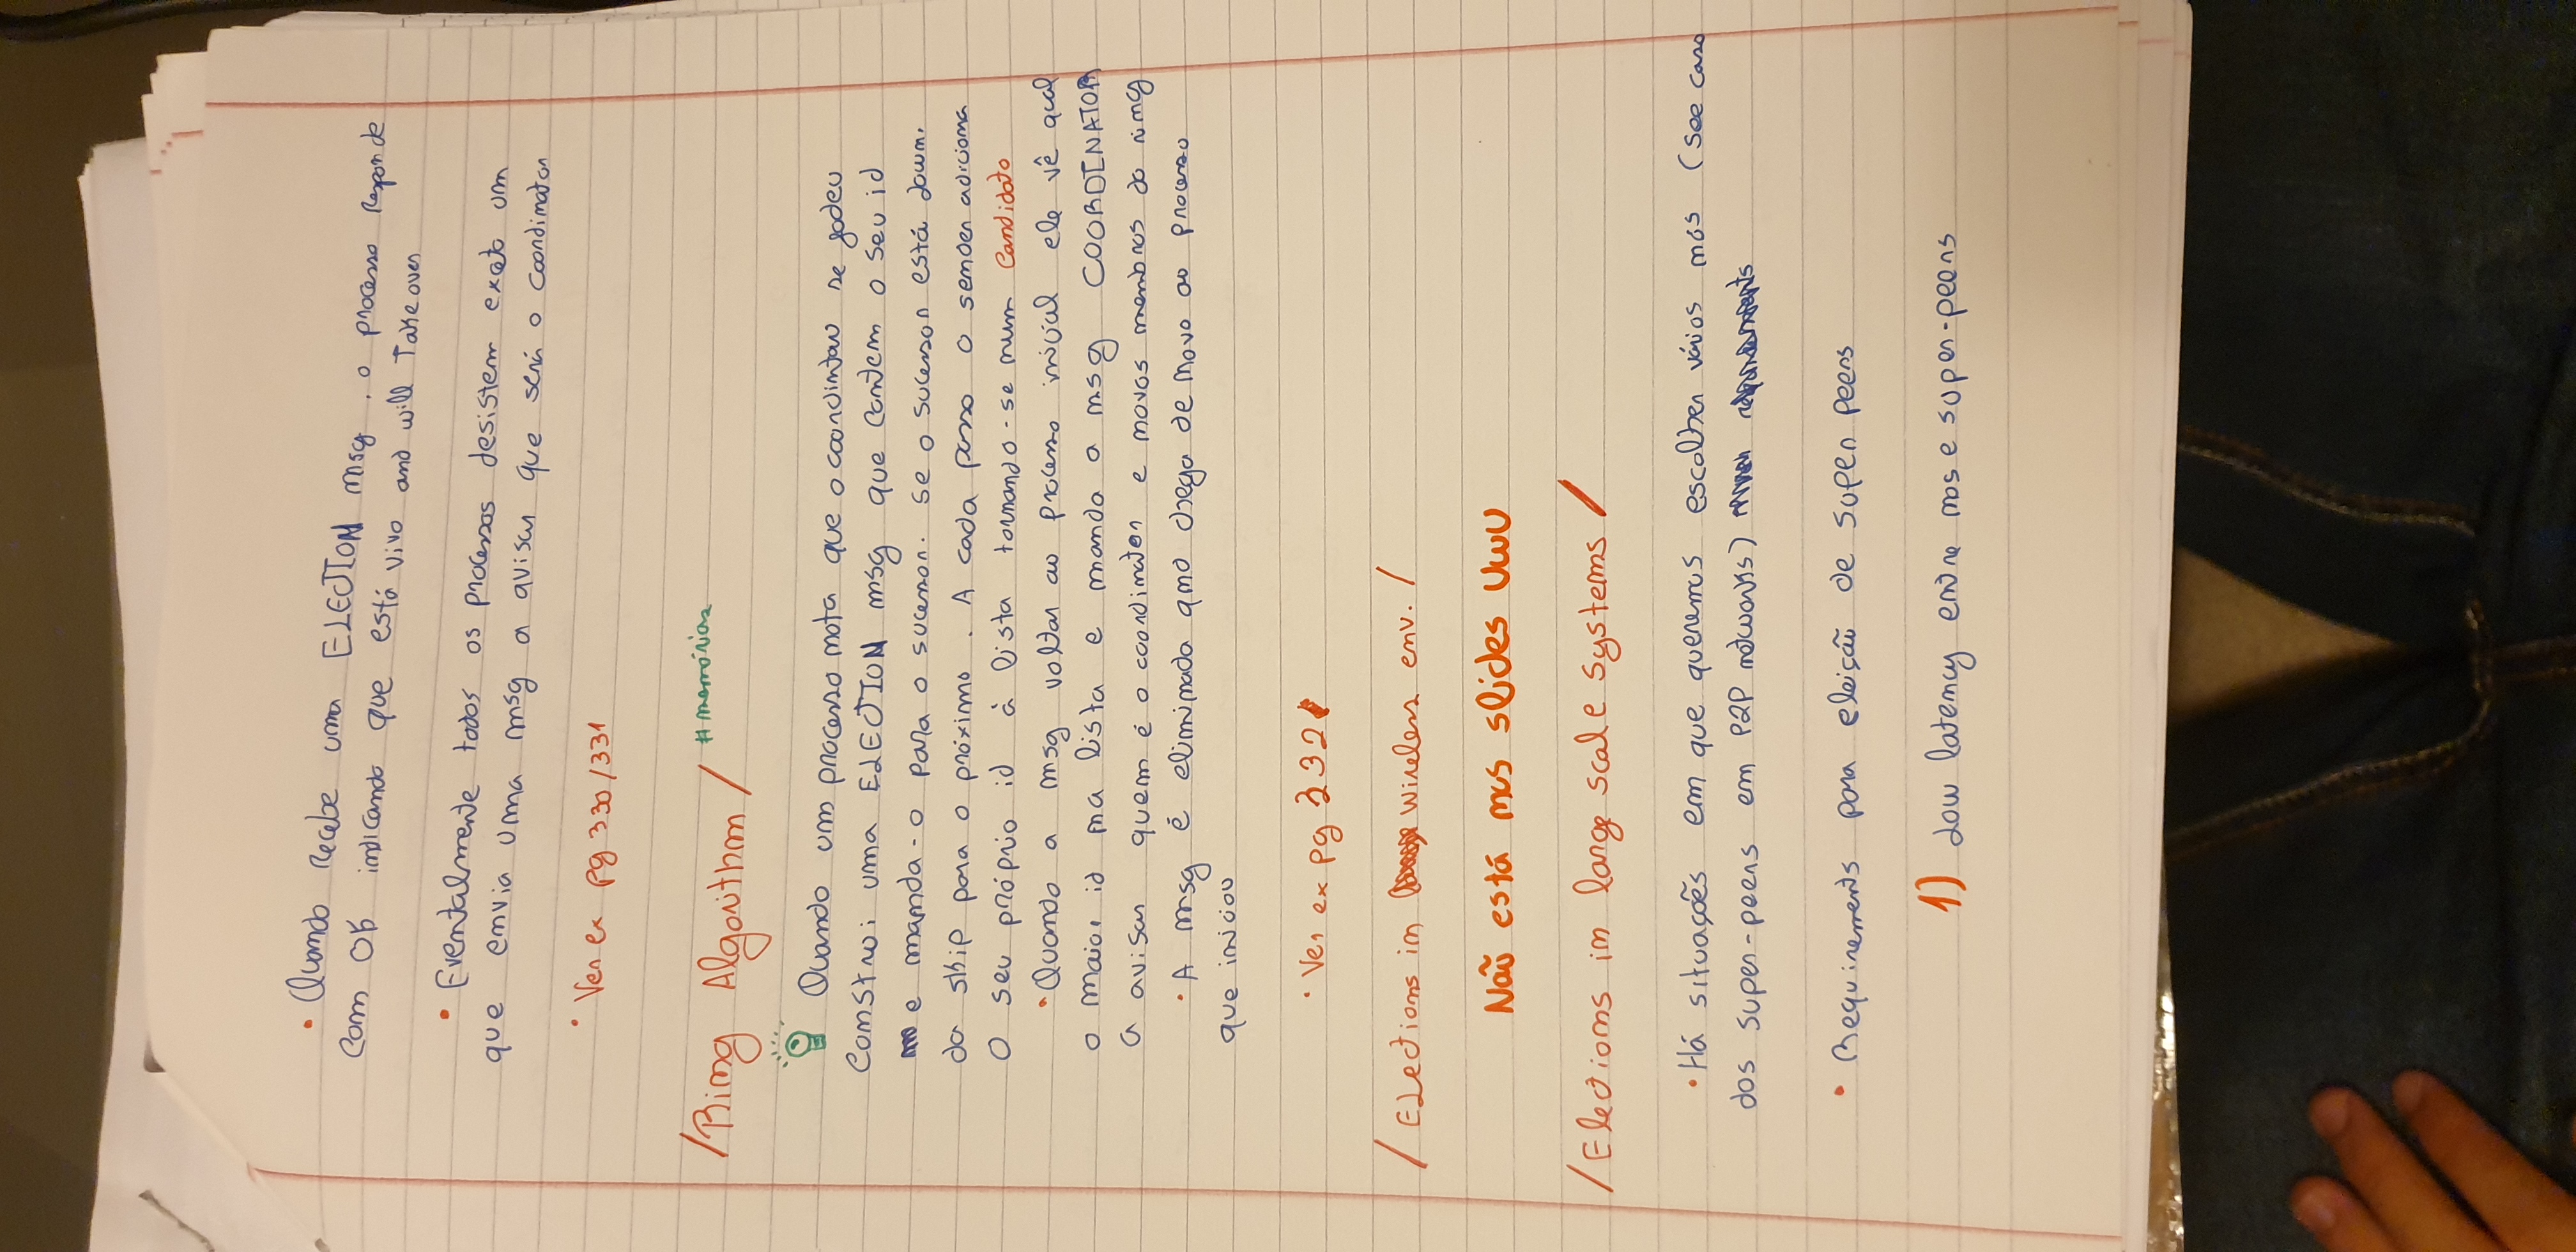 • Quando recebe uma ELECTION msg, o processo responde
com OK indicando que está vivo and will Take over
• Eventalmente todos os processos desistem exceto um
que envia uma msg a avisar que será o coordinator
• Ver ex pg 330/331
/Ring Algorithm/ #memórias
Quando um processo nota que o coordintor se fodeu
constroi uma ELECTION msg que contem o seu id
e manda-o para o sucessor. Se o sucessor está down.
da skip para o próximo. A cada passo o sender adiciona
o seu próprio id à lista tornando-se num candidato
• Quando a msg voltar ao processo inicial ele vê qual
o maior id na lista e manda a msg COORDINATOR
a avisar quem é o coordinator e novos membros do ring
• A msg é eliminada qnd chega de novo ao processo
que iniciou
• Ver ex pg 332
/Elections in wireless env./
Não está nos slides UwU
/Elections in large scale systems/
• Há situações em que queremos escolher vários nós (see caso
dos super-peers em P2P networks)
• Requirements para eleição de super peers
1) Low latency entre nos e super-peers